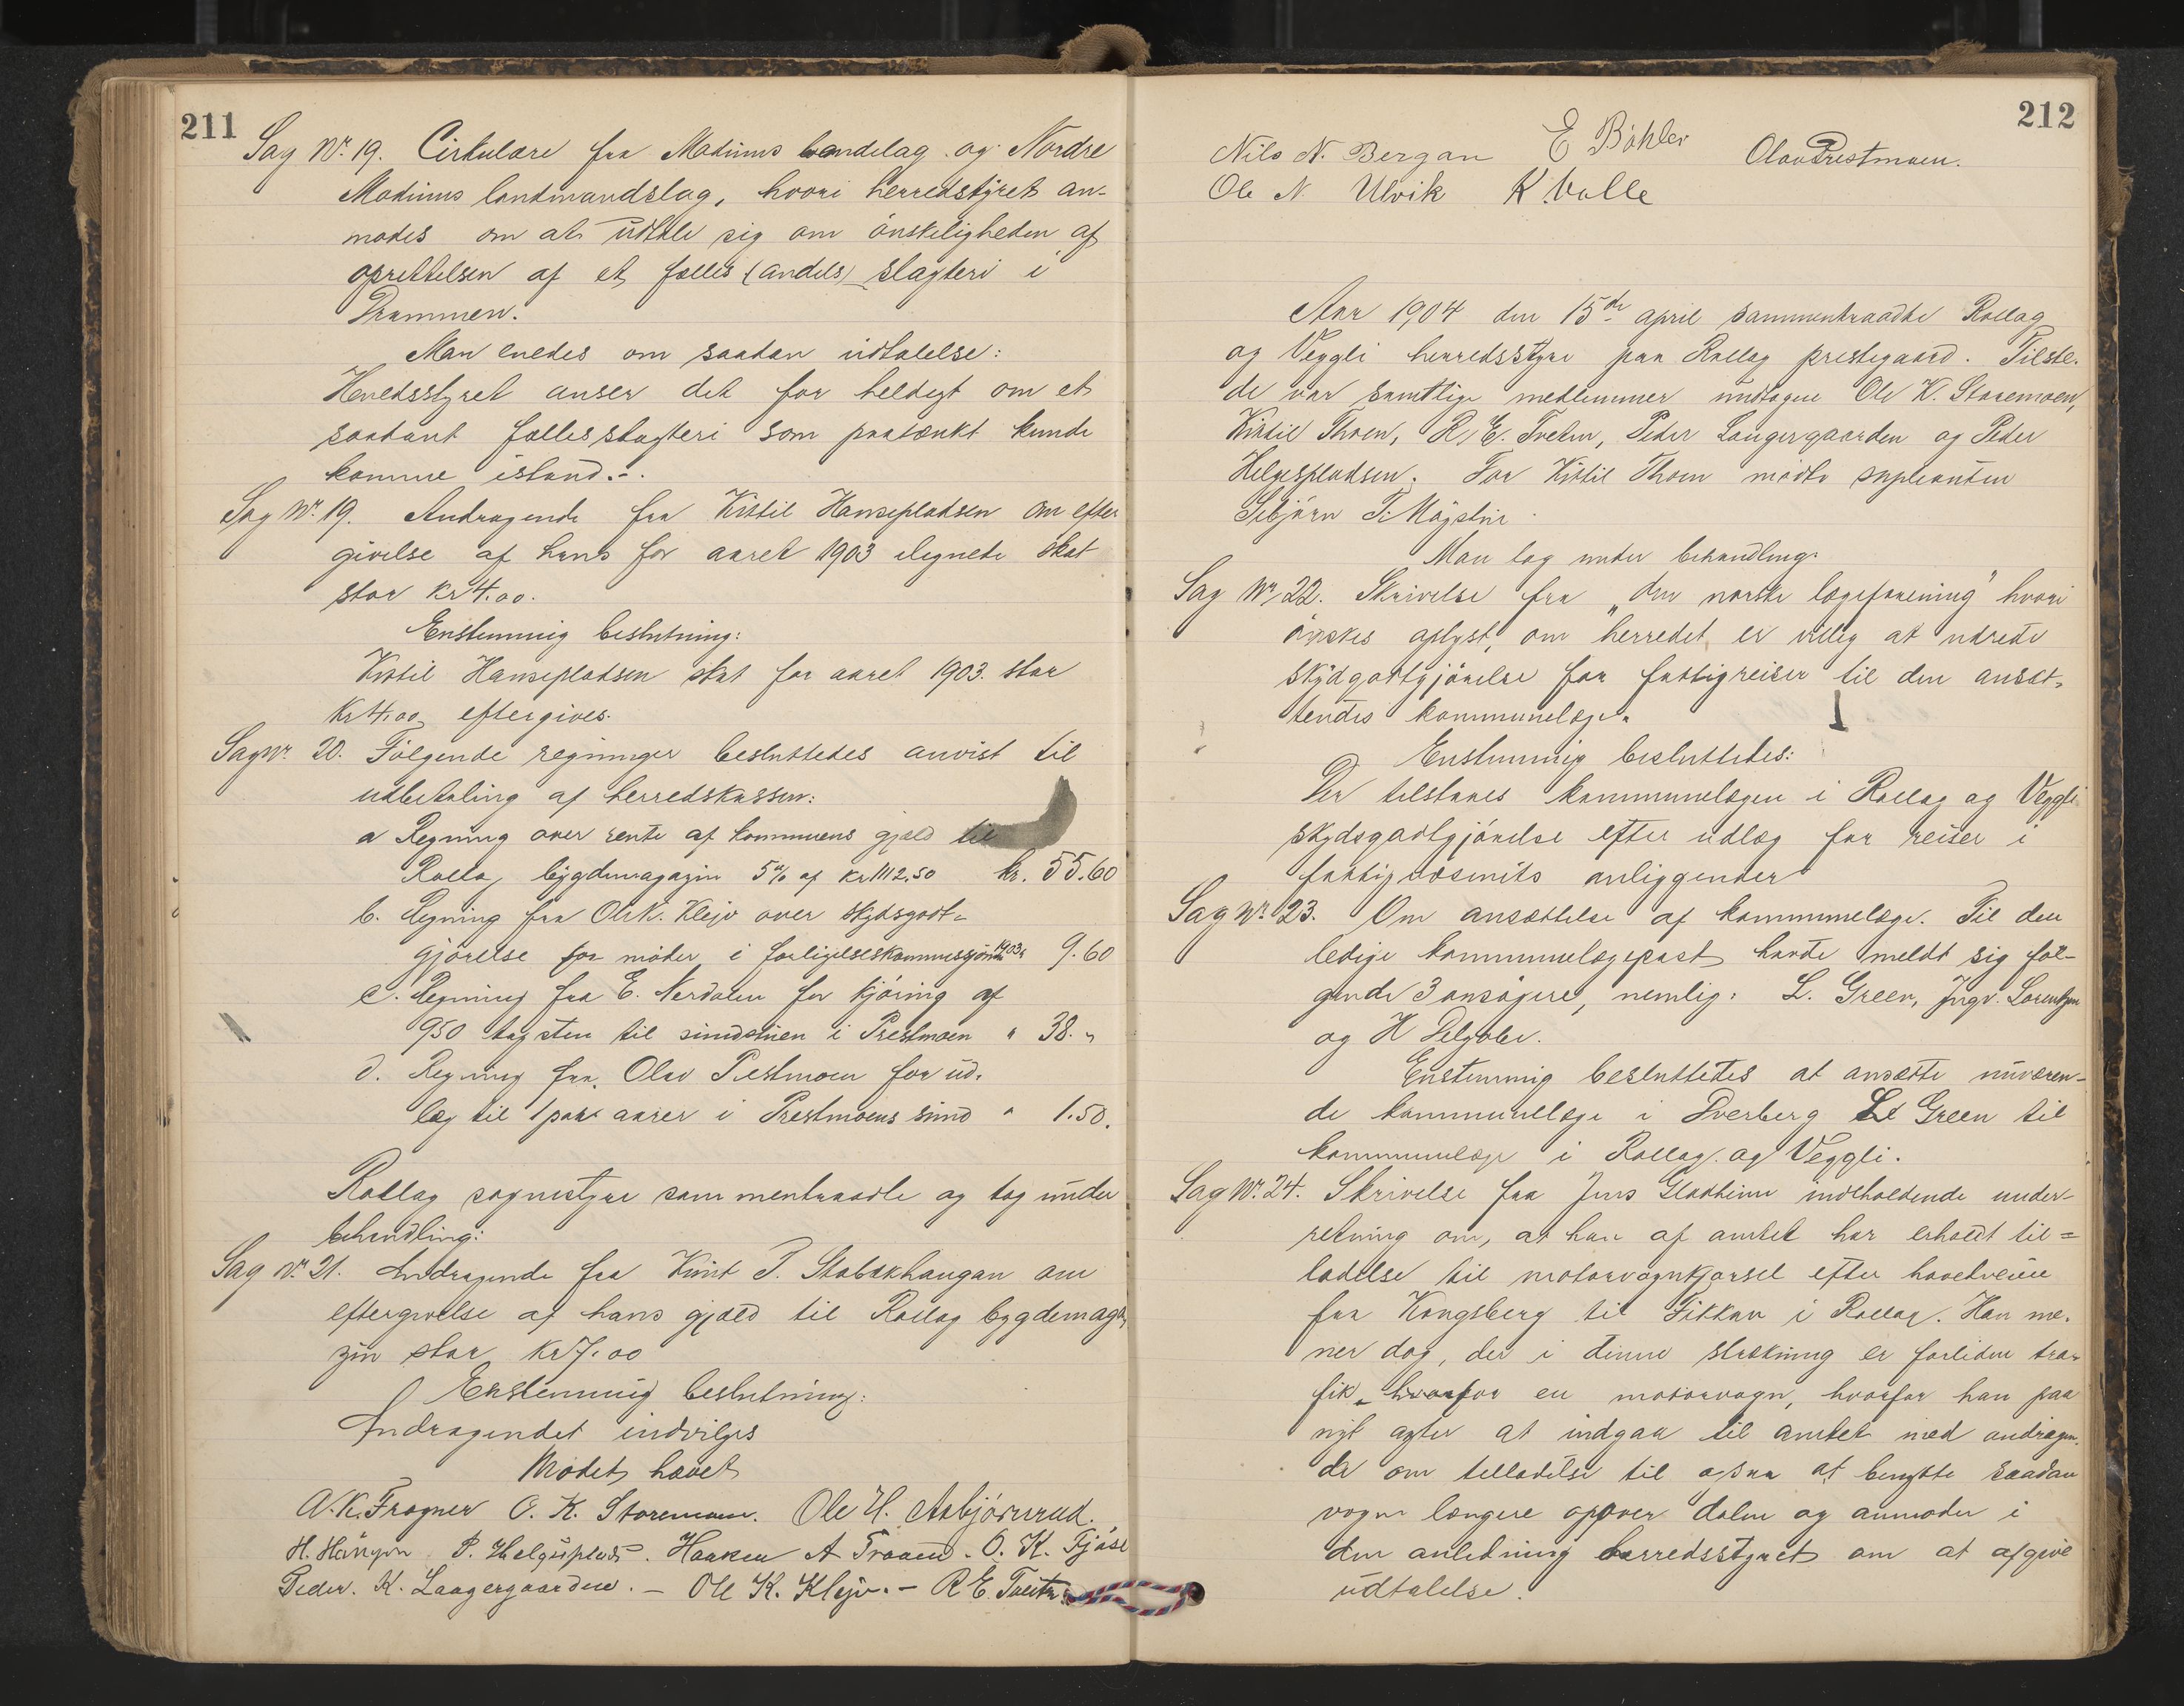 211
Sag Nr. 19. Cirkulære fra Modums landelag og Nordre
Modums landmandslag, hvori herredstyret an-
modes om at udtale sig om önskeligheden af
oprettelsen af et fælles (andels) slagteri i
Drammen.
Man enedes om saadan udtalelse:
Herredsstyret anser det for heldigt om et
saadant fællesslagteri som paatænkt kunde
komme istand.-.
Sag Nr. 19. Andragende fra Kittil Hansepladsen om efter
givelse af hans for aaret 1903 ilignede skat
stor kr 4.00.
Enstemmig beslutning:
Kittil Hansepladsen skat for aaret 1903. stor
Kr 4.00 eftergives.
Sag nr. 20. Fölgende regninger besluttedes anvist til
udbetaling af herredskassen:
a Regning over rente af kommunens gjæld til
Rollag bygdemagazin 5% af kr 1112.50 kr. 55.60
b. Regning fra Ole K. Klejv over skydsgodt-
gjörelse for möder i forligelseskommissjonen 1903 " 9.60
c. Regning fra E. Nerdalen for kjöring af
950 tagsten til smidstuen i Prestmoen " 38."
d. Regning fra Olav Prestmoen for ud-
læg til 1 par aarer i Prestmoens sund " 1.50.
Rollag sognestyre sammentraadte og tog under
behandling:
Sag Nr. 21. Andragende fra Knut P. Stabækhaugan om
eftergivelse af hans gjæld til Rollag bygdemaga
zin stor kr 7.00
Enstemmig beslutning:
Andragendet indvilges
Mödet hævet
A. K. Fragner O. K. Storemoen. Ole H. Asbjörnrud.
P. Helgesplads. Haaken A Traaen. O. K. Fjöse
Peder. K. Laagergaarden. - Ole K. Klejv. - R E Tveiten
212
Nils N. Bergan E Böhler Olav Prestmoen.
Ole N. Ulvik K Valle
Aar 1904 den 15de april sammentraadte Rollag
og Veggli herredsstyre paa Rollag prestegaard. Tilste-
de var samtlige medlemmer undtagen Ole K. Storemoen,
Kittil Thoen, R. E. Tveten, Peder Laugergaarden og Peder
Helgespladsen. For Kittil Thoen mödte supleanten
Sebjörn T. Möystur
Man tog under behandling:
Sag Nr. 22. Skrivelse fra „den norske lægeforening" hvori
önskes oplyst, om herredet er villig at udrede
skydsgodtgjörelse for fattigreiser til den ansæt-
tendes kommunelæge.
Enstemmig besluttedes:
Der tilstaaes kommunelægen i Rollag og Veggli
skydsgodtgjörelse efter udlæg for reiser i
fattigvæsenets anliggender
Sag Nr. 23. Om ansættelse af kommunelæge. Til den
ledige kommunelægepost havde meldt sig föl-
gende 3 ansögere, nemlig: L. Green, Jngv. Lorentzen
og H
Enstemmig besluttedes at ansætte nuværen-
de kommunelæge i Dverberg L Green til
kommunelæge i Rollag og Veggli.
Sag Nr. 24. Skrivelse fra Jens Gladheim indholdende under-
retning om, at han af amtet har erholdt til=
ladelse til motorvognkjørsel efter hovedveiene
fra Kongsberg til Fikkan i Rollag. Han me-
ner dog, der i denne strækning er forliden tra-
fik hvorfor en motorvogn, hvorfor han paa
nyt agter at indgaa til amtet med andragen-
de om tilladelse til ogsaa at benytte saadan
vogn længere opover dalen og anmoder i
den anledning herredsstyret om at afgive
udtalelse.